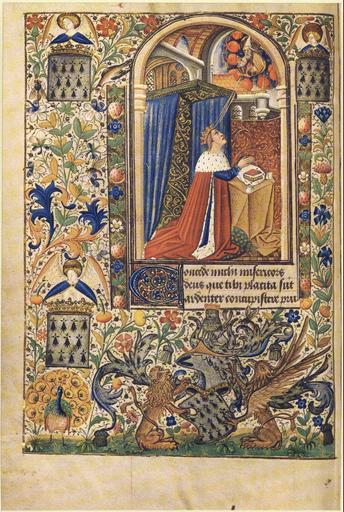 Concede michi misericors
deus que tibi placita sūt
ardenter concupiscere pru